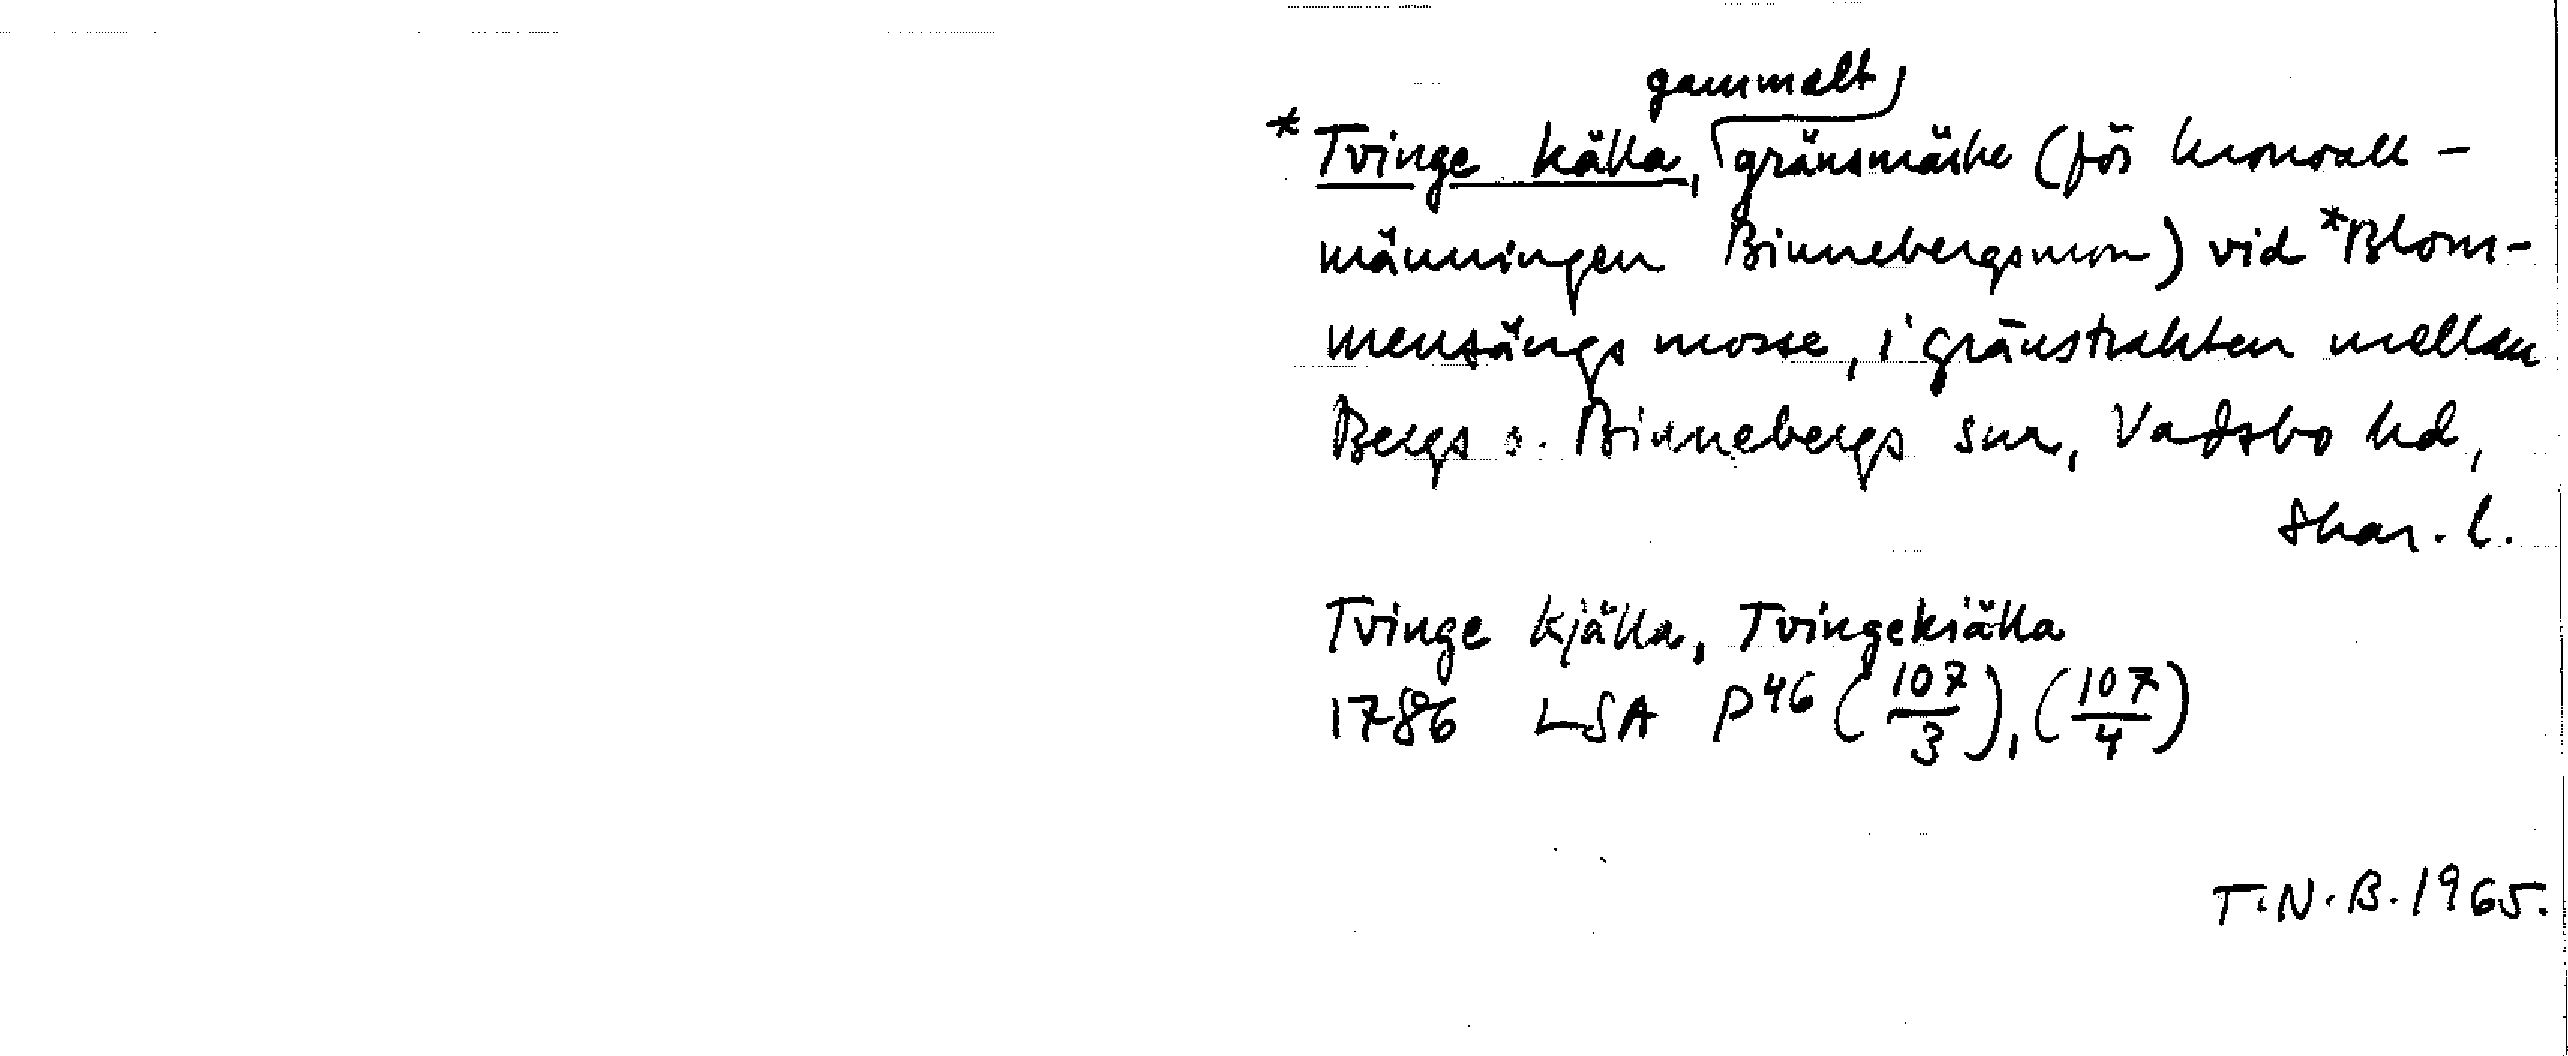 gammalt
*Tvinge källa, gränsmärke (för kronoall-
männingen Binnebergsmon) vid *Blom-
mensängs mosse, i gränstrakten mellan
Bergs o. Binnebergs snr, Vadsbo hd,
Skar. l.
Tvinge Kjälla, Tvingekiälla
1786 LSA P46 (107/3), (107/4)
T.N.B. 1965.